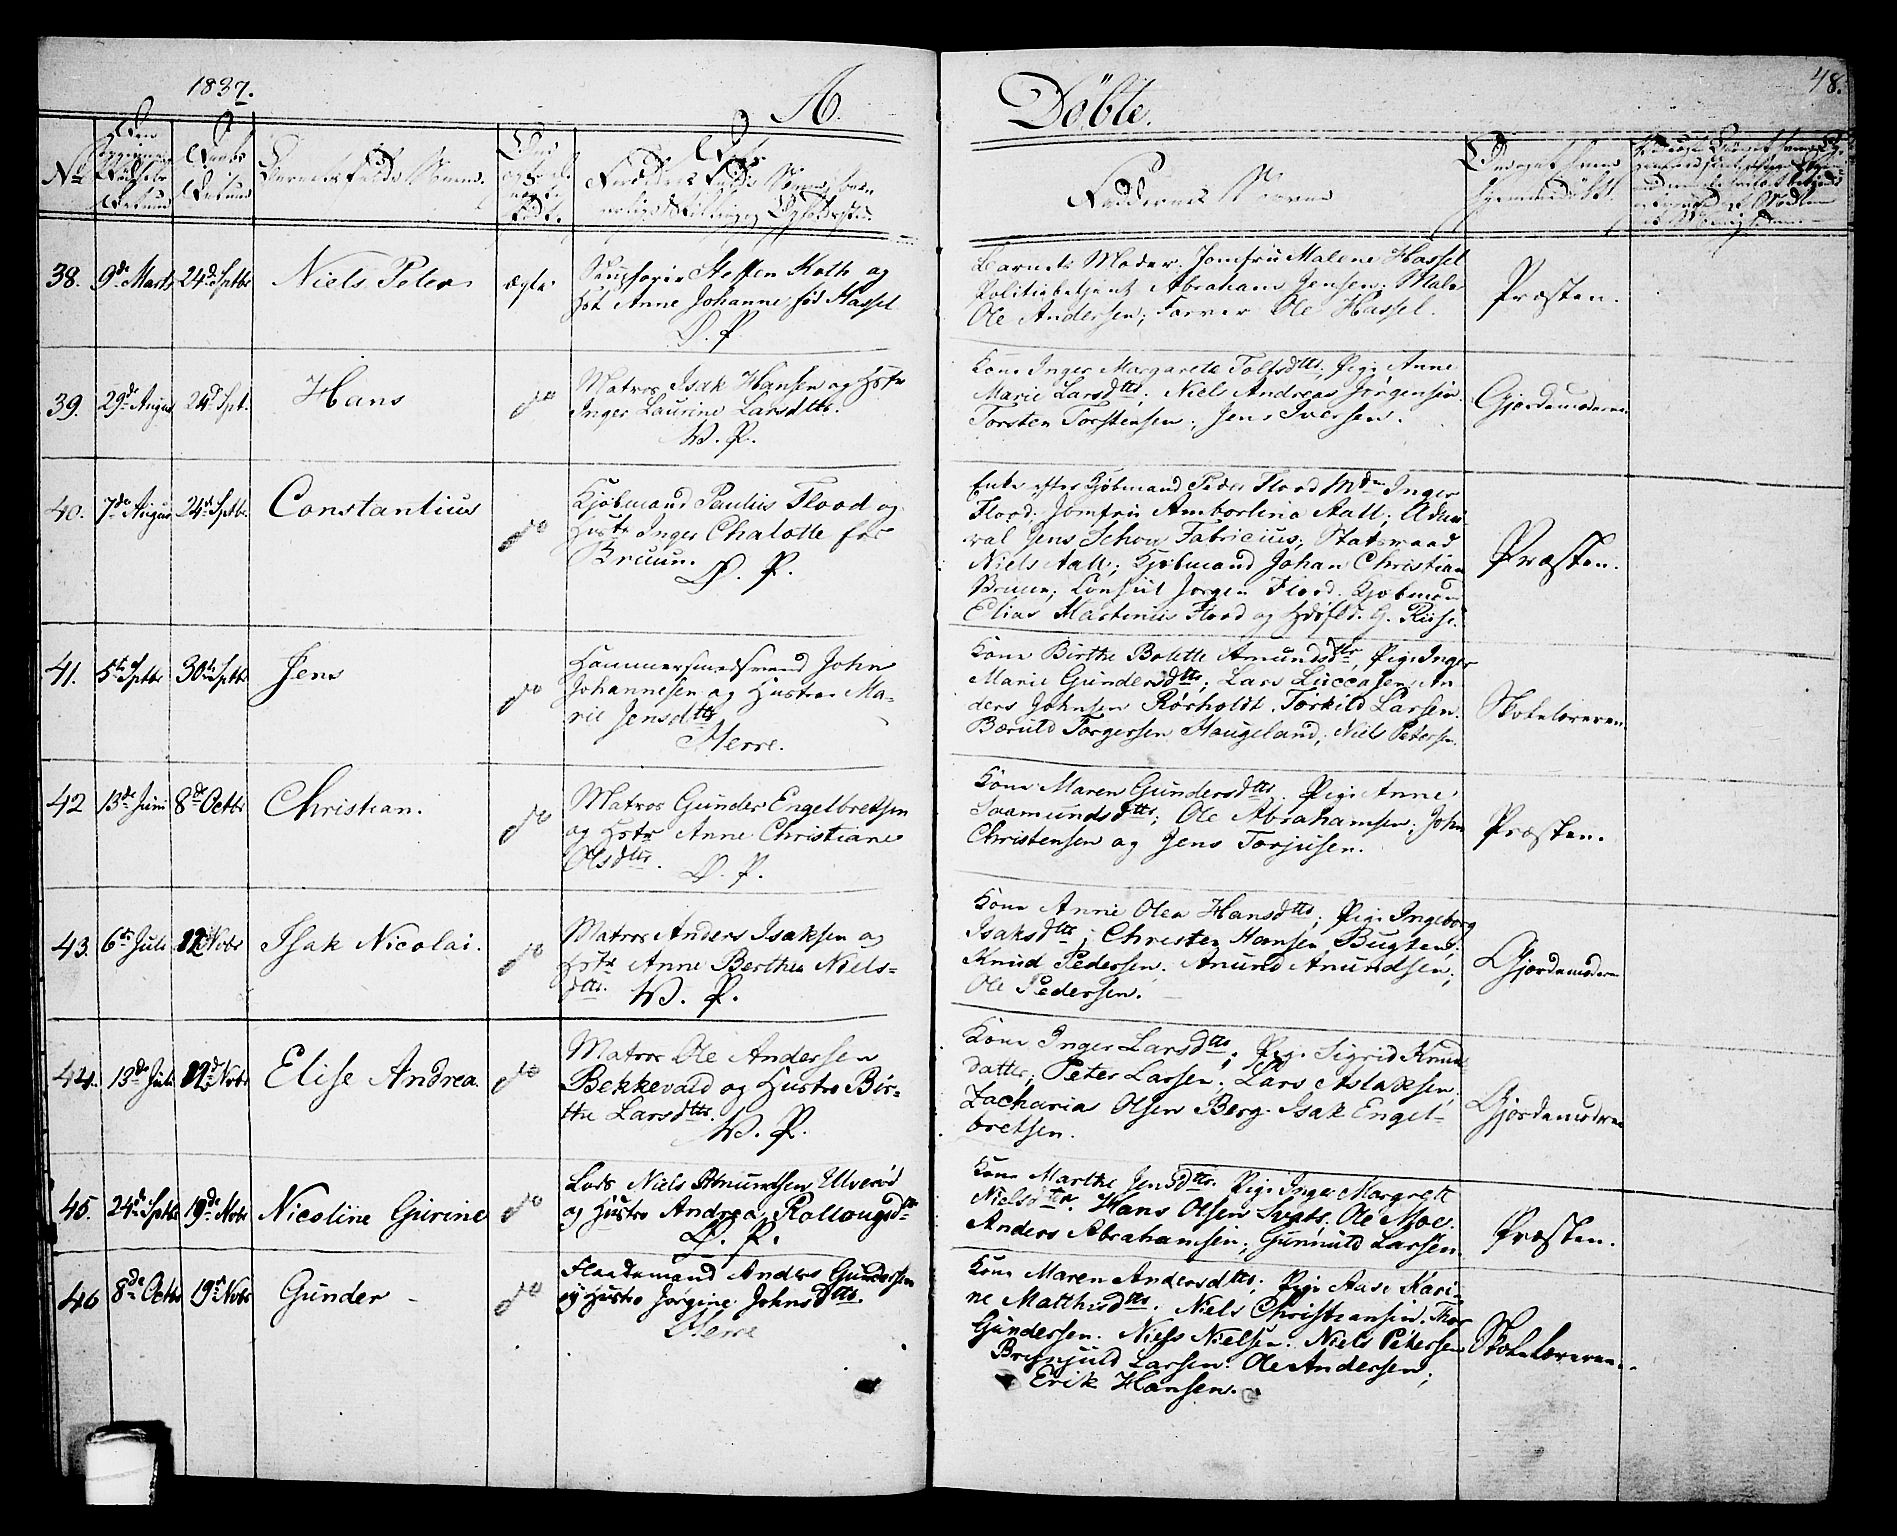 1837.
A.
Døbte.
48.
No
Barnets fulde Navn.
Faddernes Navne
38. 9de Marts 24de Septbr Niels Peter ægte
Steffen Koth og
Hst Anne Johanne, fød Hassel
D. P.
Barnets Moder; Jomfru Malene Hassel
Politiebetjent Abraham Jensen; Maler
Ole Andersen; Farver Ole Hassel.
Præsten.
39. 29de August 24de Sept. Hans do
Matros Isak Hansen og Hstr
Inger Laurine Larsdtr.
W. P.
Kone Inger Margarete Tolfsdtr, Pige Anne
Marie Larsdtr; Niels Andreas Jørgensen
Torsten Torstensen; Jens Iversen.
Gjordemoderen
40. 7de August 24de Septbr. Constantius do
Kjøbmand Paulus Flood og
Hustr Inger Chalotte fød
Bruun.
D. P.
Enke efter Kjøbmand Peder Flood Mdm Inger
Flood; Jomfru Amborlina Aall; Admi-
ral Jens Schou Fabricius; Statsraad
Niels Aall; Kjøbmand Johan Christian
Bruun; Consul Jørgen Flood. Kjøbmand
Elias Martinius Flood og
Præsten.
41. 5te Septbr 30te Septbr Jens do
Hammersmedsvend John
Johannesen og Hustroe Ma-
rie Jensdtr
Herre.
Kone Birthe Bolette Amundsdtr, Pige Inger
Marie Gundersdtr; Lars Luccasen, An
ders Johnsen Rørholdt, Torkild Larsen.
Bæruld Torgersen Haugeland; Niels Petersen.
Skolelæreren
42 13de Juni 8de Octbr Christian. do
Matros Gunder Engelbretsen
og Hstr Anne Christiane
Olsdtr.
D. P.
Kone Maren Gundersdtr, Pige Anne
Saamundsdtr; Ole Abrahamsen; John
Christensen og Jens Torjusen.
Præsten.
43. 6te Juli 12 Novbr Isak Nicolai. do
Matros Anders Isaksen og
Hstr Anne Berthea Niels-
dtr.
W. P.
Kone Anne Olea Hansdtr; Pige Ingeborg
Isaksdtr; Christen Hansen Bugten;
Knud Pedersen; Anund Anundsen;
Ole Pedersen.
Gjordemoderen
44. 13de Juli 12 Novbr Elise Andrea. do
Matros Ole Andersen
Bekkevald og Hustro Bir-
the Larsdtr.
W. P.
Kone Inger Larsdtr; Pige Sigrid Knud
datter; Peter Larsen; Lars Aslaksen,
Zacharia Olsen Berg. Isak Engel-
bretsen.
Gjordemoderen
45. 24de Septbr 19de Novbr Nicoline Gurine do
Lods Niels Amundsen Ulverød
og Hustro Andrea
D. P.
Kone Marthe Jensdtr. Pige Inger Margrete
Nielsdtr. Hans Olsen Ole Moe.
Anders Abrahamsen; Gunnuld Larsen.
Præsten.
46 8de Octbr 19de Novbr Gunder do
Anders Gundersen
og Hustro Jørgine Johnsdtr.
Herre
Kone Maren Andersdtr; Pige Aase Kari-
ne Matthisdtr. Niels Christiansen. Thor
Gundersen. Niels Nielsen. Niels Petersen
Brynjuld Larsen. Ole Andersen;
Erik Hansen.
Skolelæreren